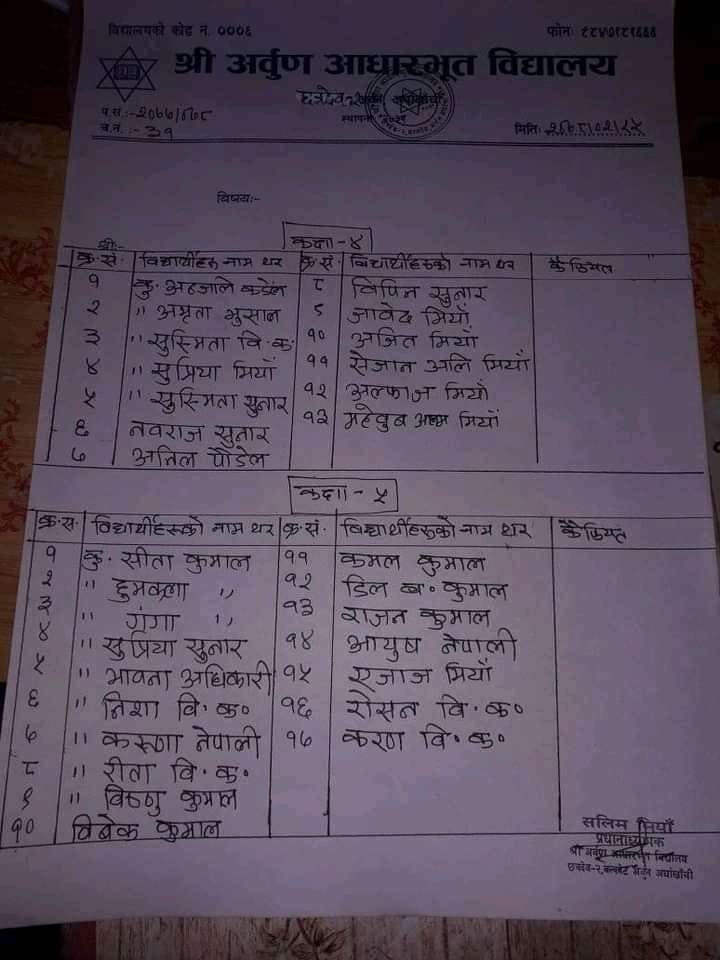 विद्यालयको कोड नं. ०००६ फोनः
श्री अर्वुण आधारभूत विद्यालय
छत्रदेव-२ अर्घाखाँची
स्थापना
प.सं.:-२०७७/०७८
च.नं.:- ३१ मितिः
विषयः-
श्री:- कक्षा - ४
क्र.सं. विद्यार्थीहरु नाम थर क्र.सं. विद्यार्थीहरुको नाम थर कैफियत
१ कु. कडेल ८ विपिन सुनार
२ " अमृता भुसाल ९ जावेद मियाँ
३ " सुस्मिता वि.क. १० अजित मियाँ
४ " सुप्रिया मियाँ ११ सेजान अलि मियाँ
५ " सुस्मिता सुनार १२ अल्फाज मियाँ
६ नवराज सुनार १३ महेवुब आलम मियाँ
७ अनिल पौडेल
कक्षा - ५
क्र.स. विद्यार्थीहरुको नाम थर क्र.सं. विद्यार्थीहरुको नाम थर कैफियत
१ कु. सीता कुमाल ११ कमल कुमाल
२ " हुमकला " १२ डिल ब० कुमाल
३ " गंगा " १३ राजन कुमाल
४ " सुप्रिया सुनार १४ आयुष नेपाली
५ " भावना अधिकारी १५ एजाज मियाँ
६ " निशा वि.क० १६ रोसन वि.क०
७ " करुणा नेपाली १७ करण वि.क०
८ " रीता वि.क.
९ " विष्णु कुमाल
१० विवेक कुमाल
सलिम मियाँ
प्रधानाध्यापक
श्री अर्वुण आधारभूत विद्यालय
छत्रदेव-२, अर्घाखाँची